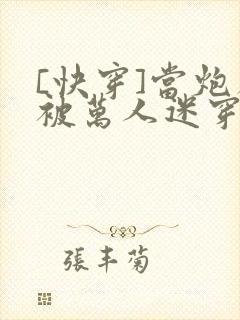 [快穿]當炮
被萬人迷穿
張丰菊